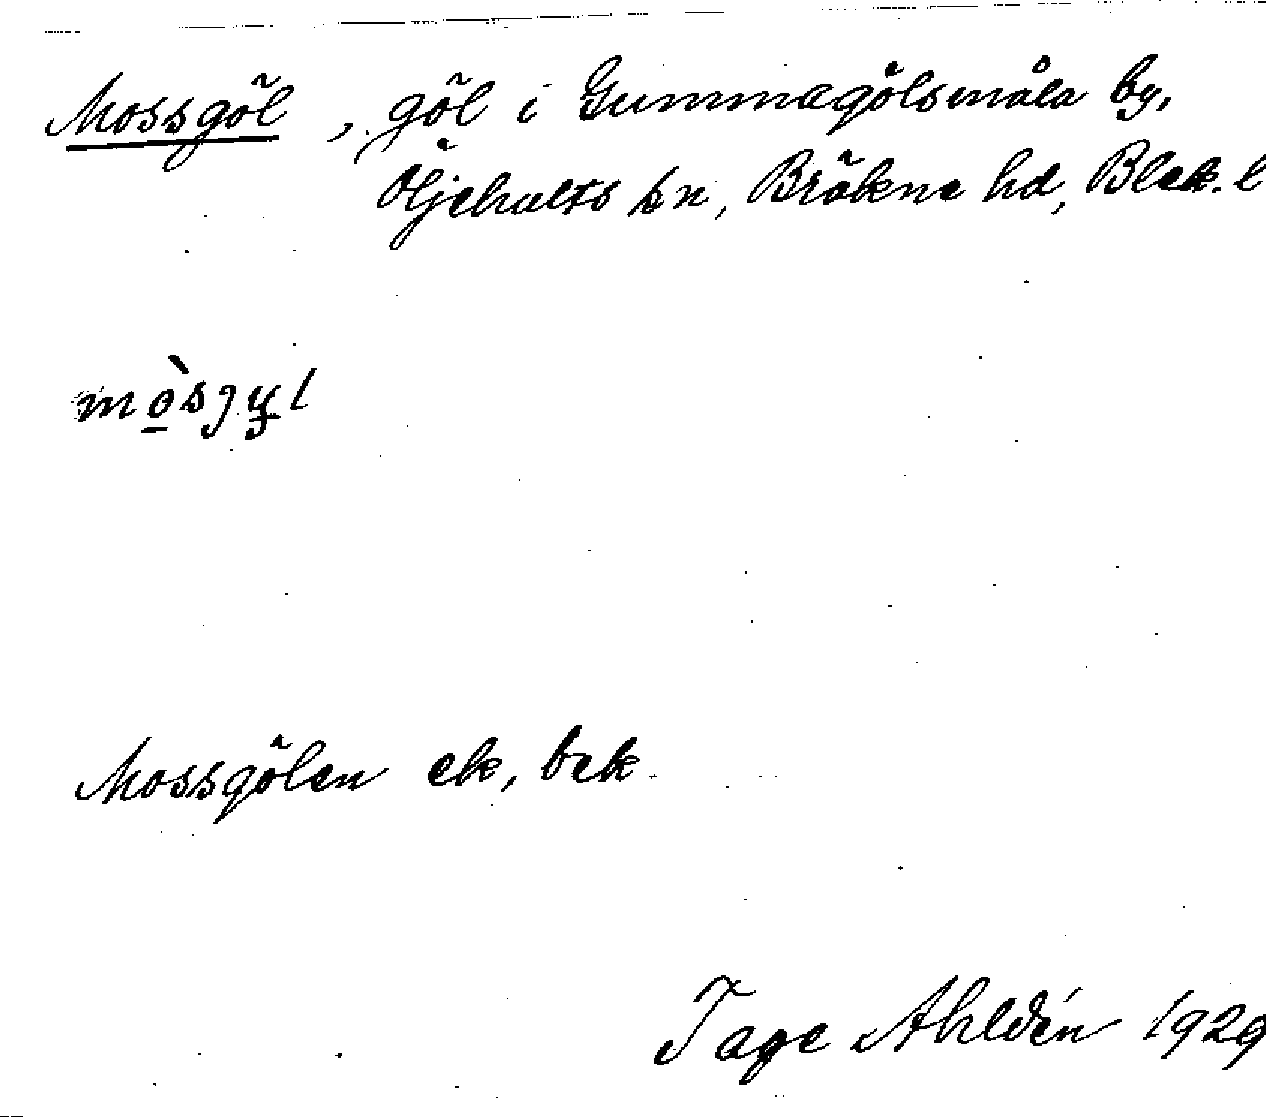 Mossgöl, göl i Gummagölsmåla by,
Öljehults sn, Bräkne hd, Blek. l
Mossgölen ek, bek.
Tage Ahldén 1929